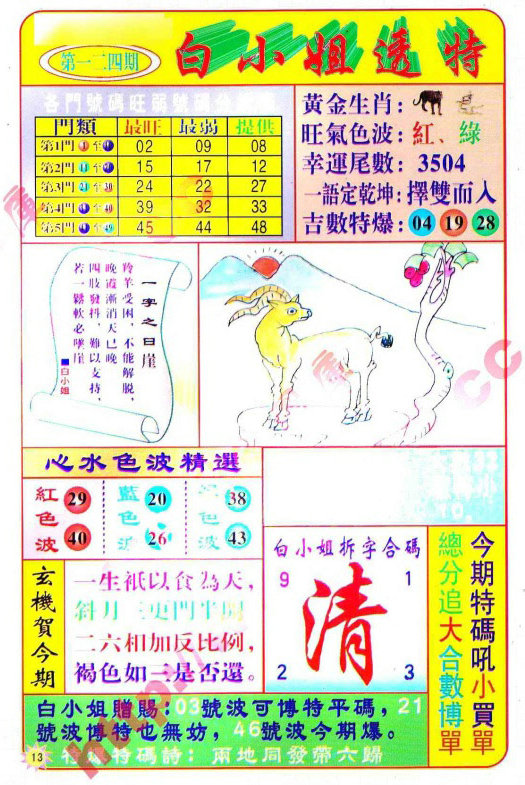 第一二四期
白小姐透特
各門號碼旺弱
門類 最旺 最弱 提供
第1門 至 02 09 08
第2門 至 15 17 12
第3門 至 24 22 27
第4門 至 39 32 33
第5門 至 45 44 48
黃金生肖:
旺氣色波:紅、綠
幸運尾數:3504
一語定乾坤:擇雙而入
吉數特爆:04 19 28
一字之曰崖
羚羊受困,不能解脫,
晚霞漸消天已晚
四肢發抖,難以支持,
若一鬆軟必墜崖
■白小姐
心水色波精選
紅色波 29 40
藍色 20 26
色波 38 43
玄機賀今期
一生祇以食為天,
斜月三更門半開
二六相加反比例,
褐色如三是否還。
白小姐拆字合碼
9 1
清
2 3
今期特碼吼小買單
總分追大合數博單
白小姐贈賜:03號波可博特平碼,21
號波博特也無妨,46號波今期爆。
特碼詩:兩地同發帶六歸
13
http:/
庫
庫
CC